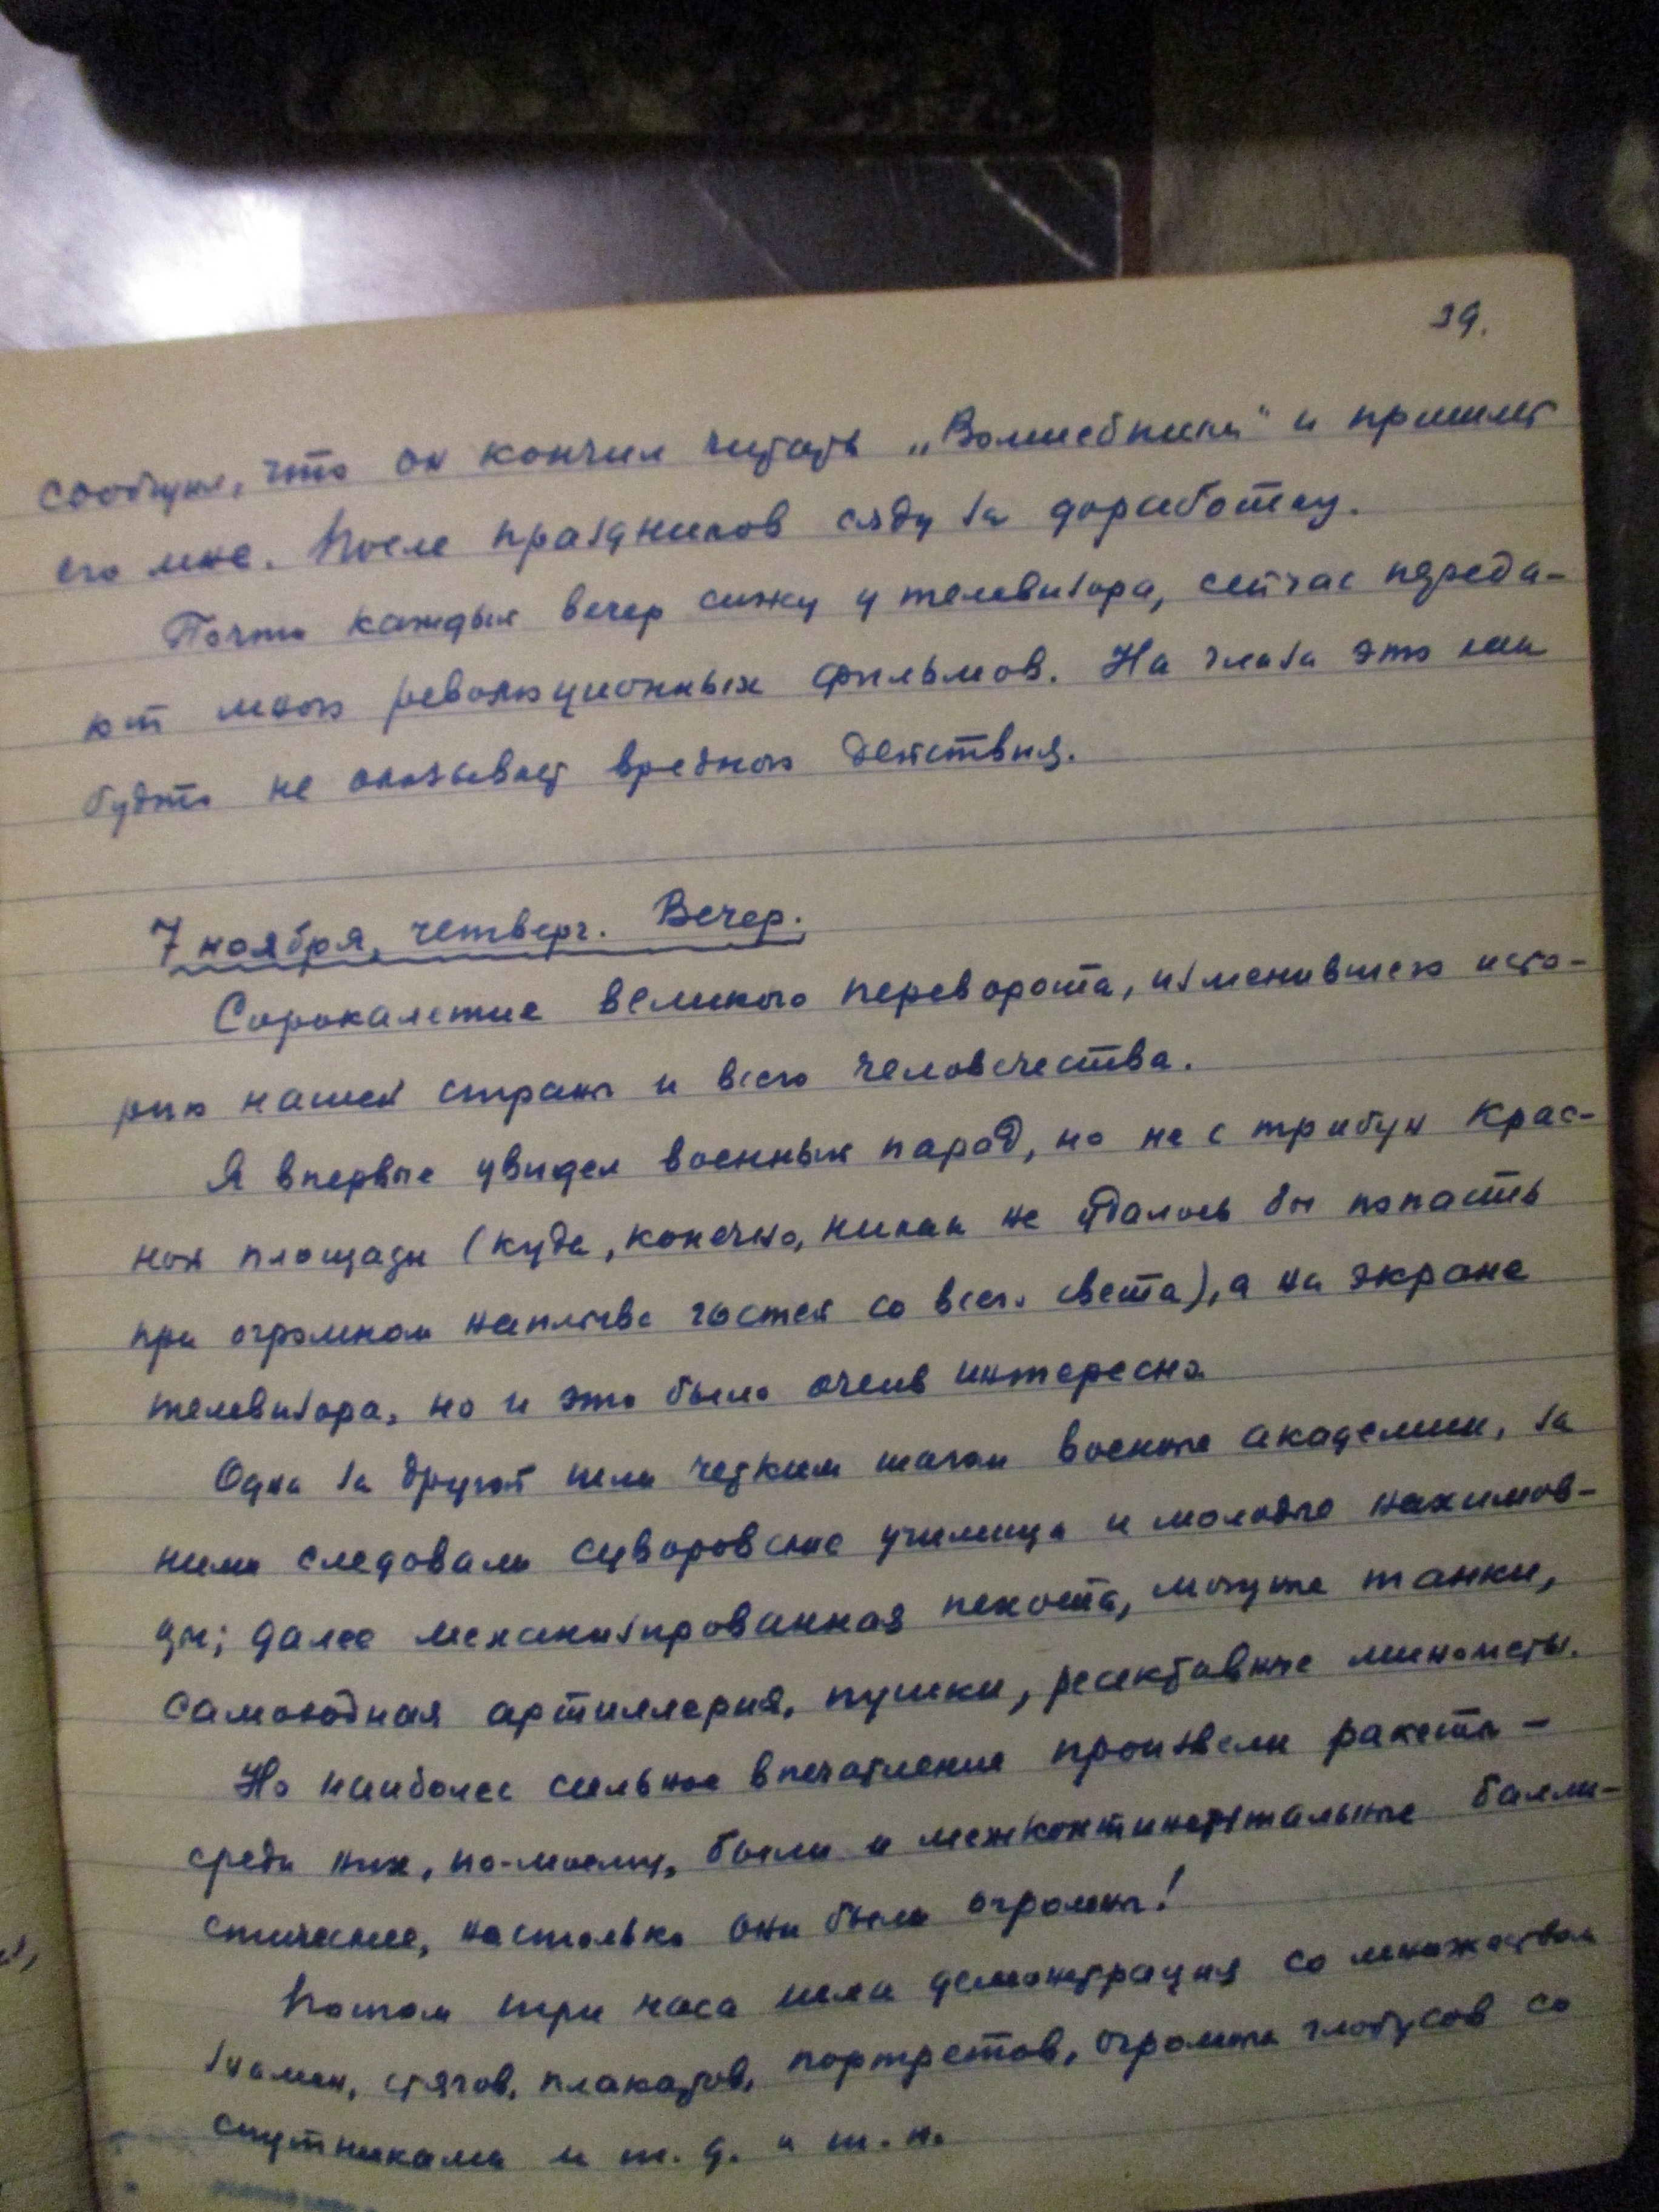 39.
сообщил, что он кончил читать „Волшебника" и пришлет
его мне. После праздников сяду за доработку.
Почти каждый вечер сижу у телевизора, сейчас переда-
ют много революционных фильмов. На глаза это как
будто не оказывает вредного действия.
7 ноября, четверг. Вечер.
Сорокалетие великого переворота, изменившего исто-
рию нашей страны и всего человечества.
Я впервые увидел военный парад, но не с трибун Крас-
ной площади (куда, конечно, никак не удалось бы попасть
при огромном наплыве гостей со всего света), а на экране
телевизора, но и это было очень интересно.
Одна за другой шли четким шагом военные академии, за
ними следовали суворовские училища и молодые нахимов-
цы; далее механизированная пехота, могучие танки,
самоходная артиллерия, пушки, реактивные минометы.
Но наиболее сильное впечатление произвели ракеты –
среди них, по-моему, были и межконтинентальные балли-
стические, настолько они были огромны!
Потом три часа шла демонстрация со множеством
знамен, стягов, плакатов, портретов, огромных глобусов со
спутниками и т. д. и т. п.